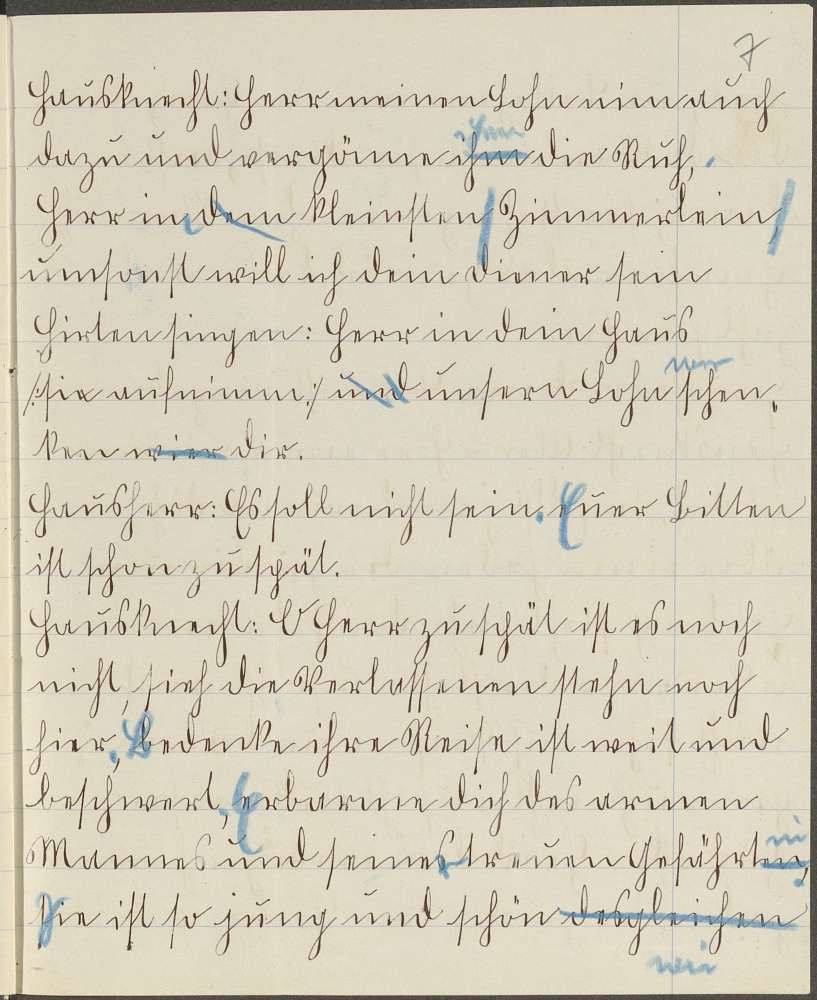 7
Hausknecht: Herr meinen Lohn nim auch
ihnen
dazu und vergönne ihm die Ruh,.
Herr in dem kleinsten Zimmerlein,
umsonst will ich dein Diener sein
Hirten singen: Herr in dein Haus
wir
/:sie aufnimm:/ und unsern Lohn schen„
ken wier dir.
Hausherr: Es soll nicht sein. Euer Bitten
ist schon zu spät.
Hausknecht: O Herr zu spät ist es noch
nicht, sieh die Verlassenen stehn noch
hier, Bedenke ihre Reise ist weit und
beschwert, Erbarme dich des armen
Mannes und seines treuen Gefährten,
in
Sie ist so jung und schön desgleichen
wie